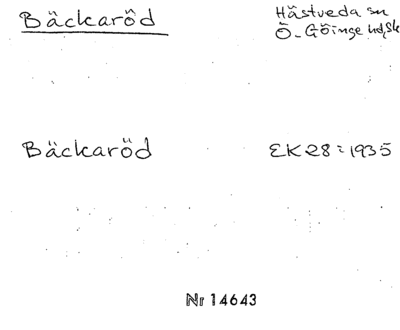 Bäckaröd
Hästveda sn
Ö. Göinge hd, Sk
Bäckaröd
EK28:1935
Nr 14643